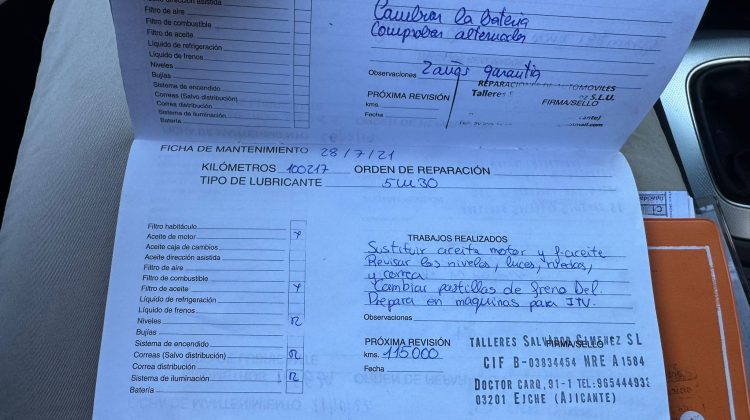 Aceite dirección asistida
Filtro de aire
Filtro de combustible
Filtro de aceite
Líquido de refrigeración
Líquido de frenos
Niveles
Bujías
Sistema de encendido
Correas (Salvo distribución)
Correa distribución
Sistema de iluminación
Batería
Cambiar la bateria
Comprobar alternador
Observaciones 2 años garantia
PRÓXIMA REVISIÓN
kms.
Fecha
REPARACIONES DE AUTOMOVILES
Talleres S.L.U.
FIRMA/SELLO
FICHA DE MANTENIMIENTO 28/7/21
KILÓMETROS 100217 ORDEN DE REPARACIÓN
TIPO DE LUBRICANTE 5W30
Filtro habitáculo
Aceite de motor x
Aceite caja de cambios
Aceite dirección asistida
Filtro de aire
Filtro de combustible
Filtro de aceite x
Líquido de refrigeración
Líquido de frenos
Niveles R
Bujías
Sistema de encendido
Correas (Salvo distribución) R
Correa distribución
Sistema de iluminación R
Batería
TRABAJOS REALIZADOS
Sustituir aceite motor y f-aceite
Revisar los niveles, luces, ruedas,
y correa.
Cambiar pastillas de freno Del.
Prepara en maquinas para ITV.
Observaciones
PRÓXIMA REVISIÓN
kms. 115000
Fecha
FIRMA/SELLO
TALLERES SALVADOR GIMENEZ SL
CIF B-03834454 NRE A1584
DOCTOR CARO, 91-1 TEL:965444933
03201 ELCHE (ALICANTE)